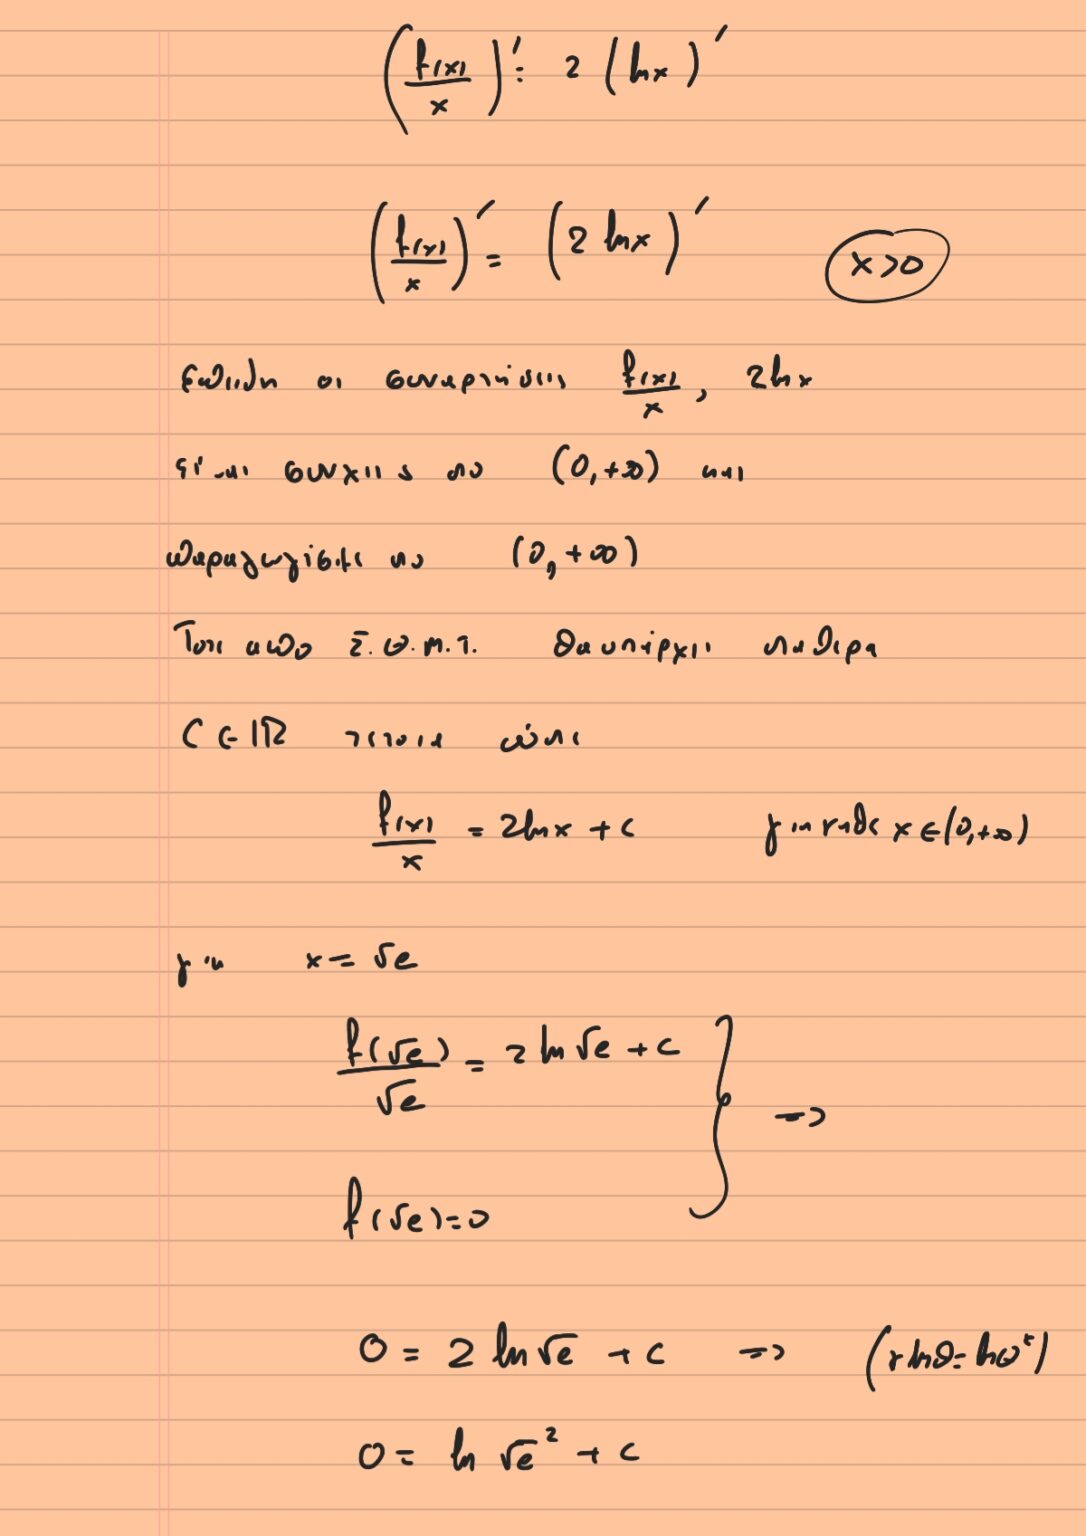 (f(x)/x)' = 2 (lnx)'
(f(x)/x)' = (2 lnx)' x>0
Επειδή οι συναρτήσεις f(x)/x, 2lnx
είναι συνεχείς στο (0,+∞) και
παραγωγίσιμες στο (0,+∞)
Τότε από Σ.Θ.Μ.Τ. θα υπάρχει σταθερα
C ∈ ℝ τέτοια ώστε
f(x)/x = 2lnx + c για κάθε x ∈ (0,+∞)
για x = √e
f(√e)/√e = 2 ln √e + c
⇒
f(√e)=0
0 = 2 ln √e + c ⇒ (κ lnθ = lnθ^κ)
0 = ln √e² + c